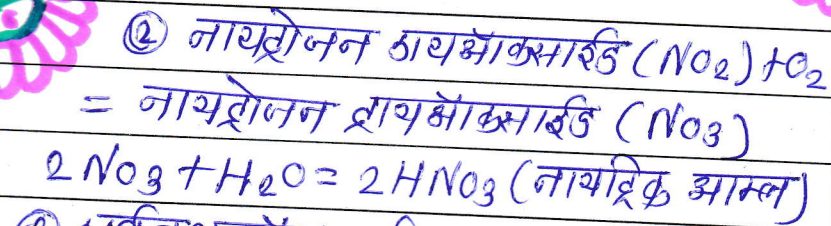 ② नायट्रोजन डायऑक्साईड (NO2) + O2
= नायट्रोजन ट्रायऑक्साईड (NO3)
2 NO3 + H2O = 2HNO3 (नायट्रिक आम्ल)